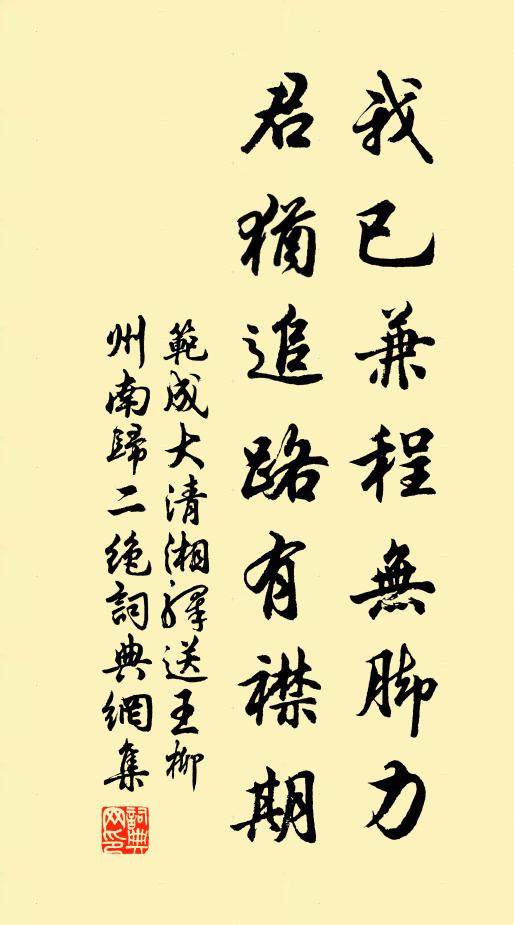 我已兼程無脚力
君猶追路有襟期
範成大清湘驛送王柳
州南歸二絶詞典網集
詞典
网印